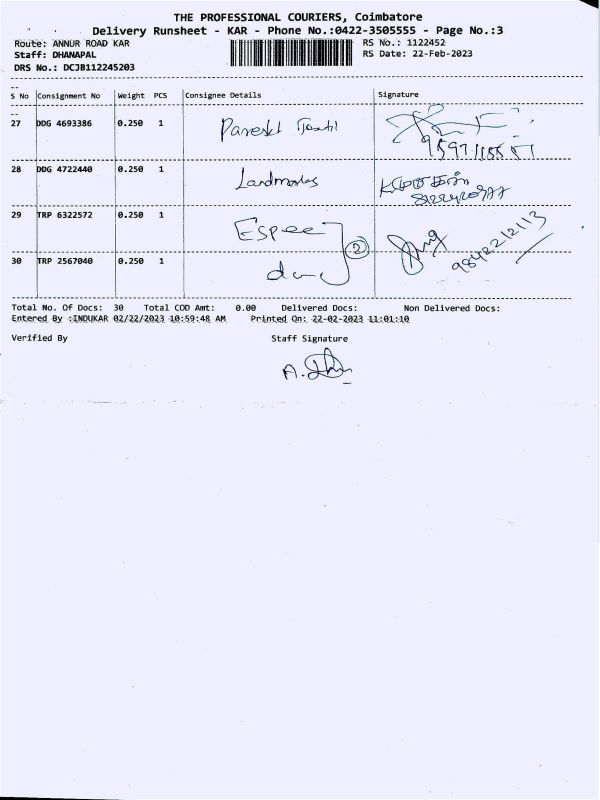 THE PROFESSIONAL COURIERS, Coimbatore
Delivery Runsheet - KAR - Phone No.:0422-3505555 - Page No.:3
Route: ANNUR ROAD KAR RS No.: 1122452
Staff: DHANAPAL RS Date: 22-Feb-2023
DRS No.: DCJB112245203
S No Consignment No Weight PCS Consignee Details Signature
27 DDG 4693386 0.250 1
28 DDG 4722440 0.250 1 Landmarks
29 TRP 6322572 0.250 1 Espee
30 TRP 2567040 0.250 1 2 9842212113
Total No. Of Docs: 30 Total COD Amt: 0.00 Delivered Docs: Non Delivered Docs:
Entered By :INDUKAR 02/22/2023 10:59:48 AM Printed On: 22-02-2023 11:01:10
Verified By Staff Signature